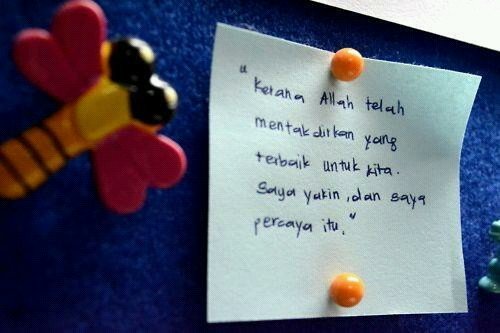 "Kerana Allah telah
mentakdirkan yang
terbaik untuk kita.
Saya yakin, dan saya
percaya itu."